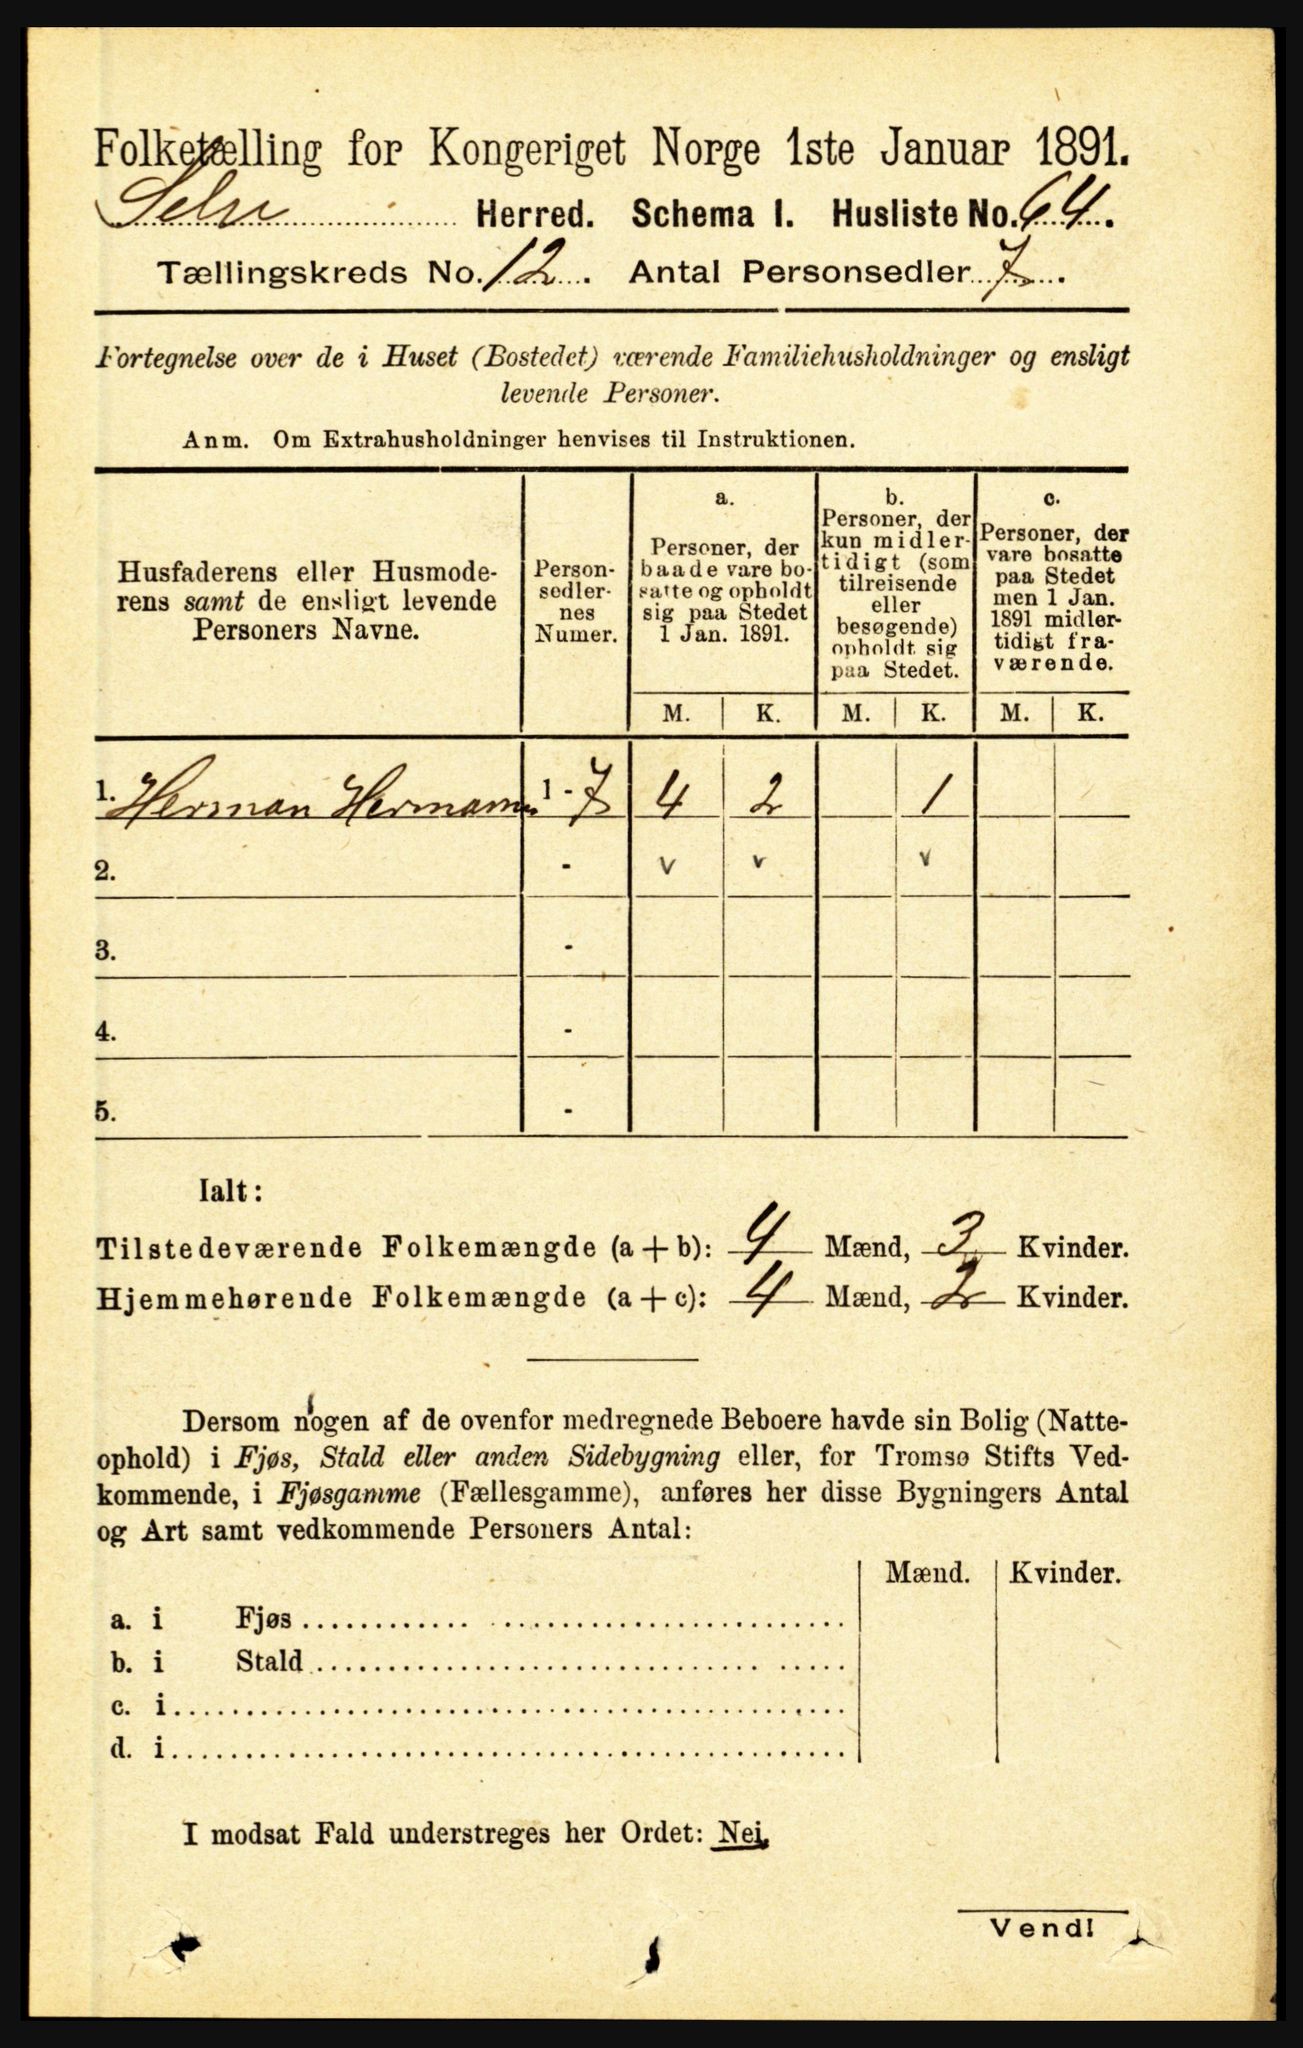 Folketælling for Kongeriget Norge 1ste Januar 1891.
Selje Herred. Schema I. Husliste No. 64.
Tællingskreds No. 12. Antal Personsedler 7.
Fortegnelse over de i Huset (Bostedet) værende Familiehusholdninger og ensligt
levende Personer.
Anm. Om Extrahusholdninger henvises til Instruktionen.
Husfaderens eller Husmode-
rens samt de ensligt levende
Personers Navne.
Person-
sedler-
nes
Numer.
a.
Personer, der
baade vare bo-
satte og opholdt
sig paa Stedet
1 Jan. 1891.
b.
Personer, der
kun midler-
tidigt (som
tilreisende
eller
besøgende)
opholdt sig
paa Stedet.
c.
Personer, der
vare bosatte
paa Stedet
men 1 Jan.
1891 midler-
tidigt fra-
værende.
M. K. M. K. M. K.
1. Herman Hermans 1 - 7 4 2 1
2. - v v v
3. -
4. -
5. -
Ialt:
Tilstedeværende Folkemængde (a + b): 4 Mænd, 3 Kvinder.
Hjemmehørende Folkemængde (a + c): 4 Mænd, 2 Kvinder.
Dersom nogen af de ovenfor medregnede Beboere havde sin Bolig (Natte-
ophold) i Fjøs, Stald eller anden Sidebygning eller, for Tromsø Stifts Ved-
kommende, i Fjøsgamme (Fællesgamme), anføres her disse Bygningers Antal
og Art samt vedkommende Personers Antal:
Mænd. Kvinder.
a. i Fjøs
b. i Stald
c. i
d. i
I modsat Fald understreges her Ordet: Nei.
Vend!